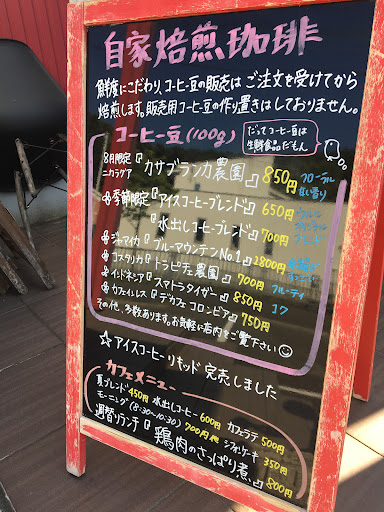 自家焙煎珈琲
鮮度にこだわり、コーヒー豆の販売はご注文を受けてから
焙煎します。販売用コーヒー豆の作り置きはしておりません。
コーヒー豆(100g)
だってコーヒー豆は
生鮮食品だもん
8月限定
ニカラグア
『カサブランカ農園』850円
フローラル
甘い香り
季節限定『アイスコーヒーブレンド』650円
『水出しコーヒーブレンド』700円
ジャマイカ『ブルーマウンテンNo.1』2800円
コスタリカ『トラピチェ農園』700円 フルーティ
インドネシア『スマトラタイガー』850円 コク
カフェインレス『デカフェコロンビア』750円
その他、多数あります。お気軽に店内をご覧下さい
☆アイスコーヒーリキッド 完売しました
カフェメニュー
夏ブレンド450円 水出しコーヒー600円 カフェラテ500円
モーニング(8:30-10:30)700円 シフォンケーキ350円
週替りランチ『鶏肉のさっぱり煮』800円